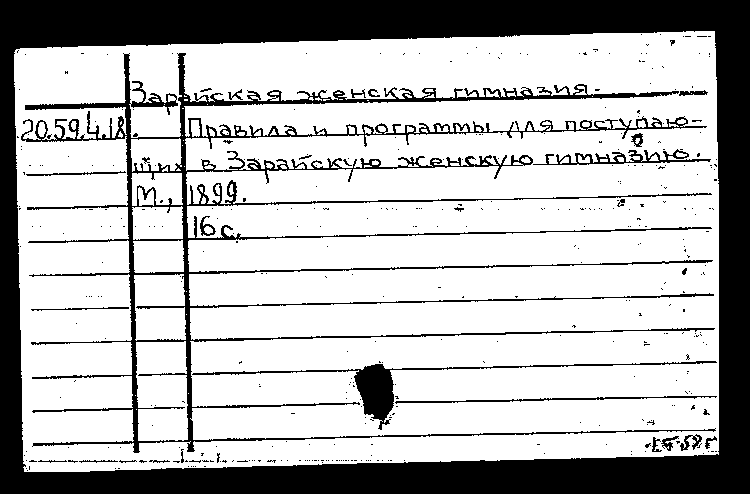 Зарайская женская гимназия.
20.59.4.18. Правила и программы для поступаю-
щих в Зарайскую женскую гимназию.
М., 1899.
16 с.